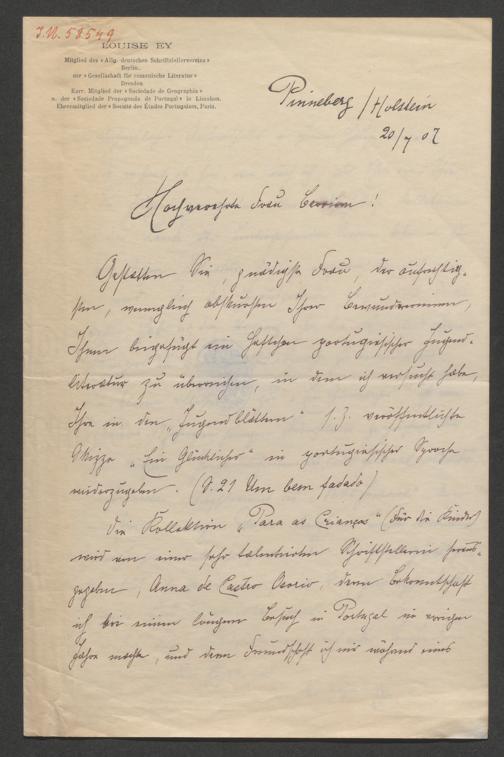 J.N. 58549
LOUISE EY
Mitglied des »Allg. deutschen Schriftstellervereins«
Berlin,
der »Gesellschaft für romanische Literatur«
Dresden
Korr. Mitglied der »Sociedade de Geographia«
u. der »Sociedade Propaganda de Portugal« in Lissabon,
Ehrenmitglied der »Société des Études Portugaises, Paris.
Pinneberg / Holstein
20/7 07
Hochverehrte Frau
Gestatten Sie, gnädigste Frau, der aufrichtig-
sten, wenngleich obskursten Ihrer Bewunderinnen,
Ihnen beigefügt ein Heftchen portugiesischer Jugend-
literatur zu überreichen, in dem ich versucht habe,
Ihre in den „Jugendblättern" s. Z. veröffentlichte
Skizze „Ein Glücklicher" in portugiesischer Sprache
wiederzugeben. (S. 21 Um bem fadado)
Die Kollektion „Para as Crianças" (Für die Kinder)
wird von einer sehr talentierten Schriftstellerin heraus-
gegeben, Anna de Castro Osorio, deren Bekanntschaft
ich bei einem längern Besuch in Portugal im vorigen
Jahre machte, und deren Freundschaft ich mir während eines